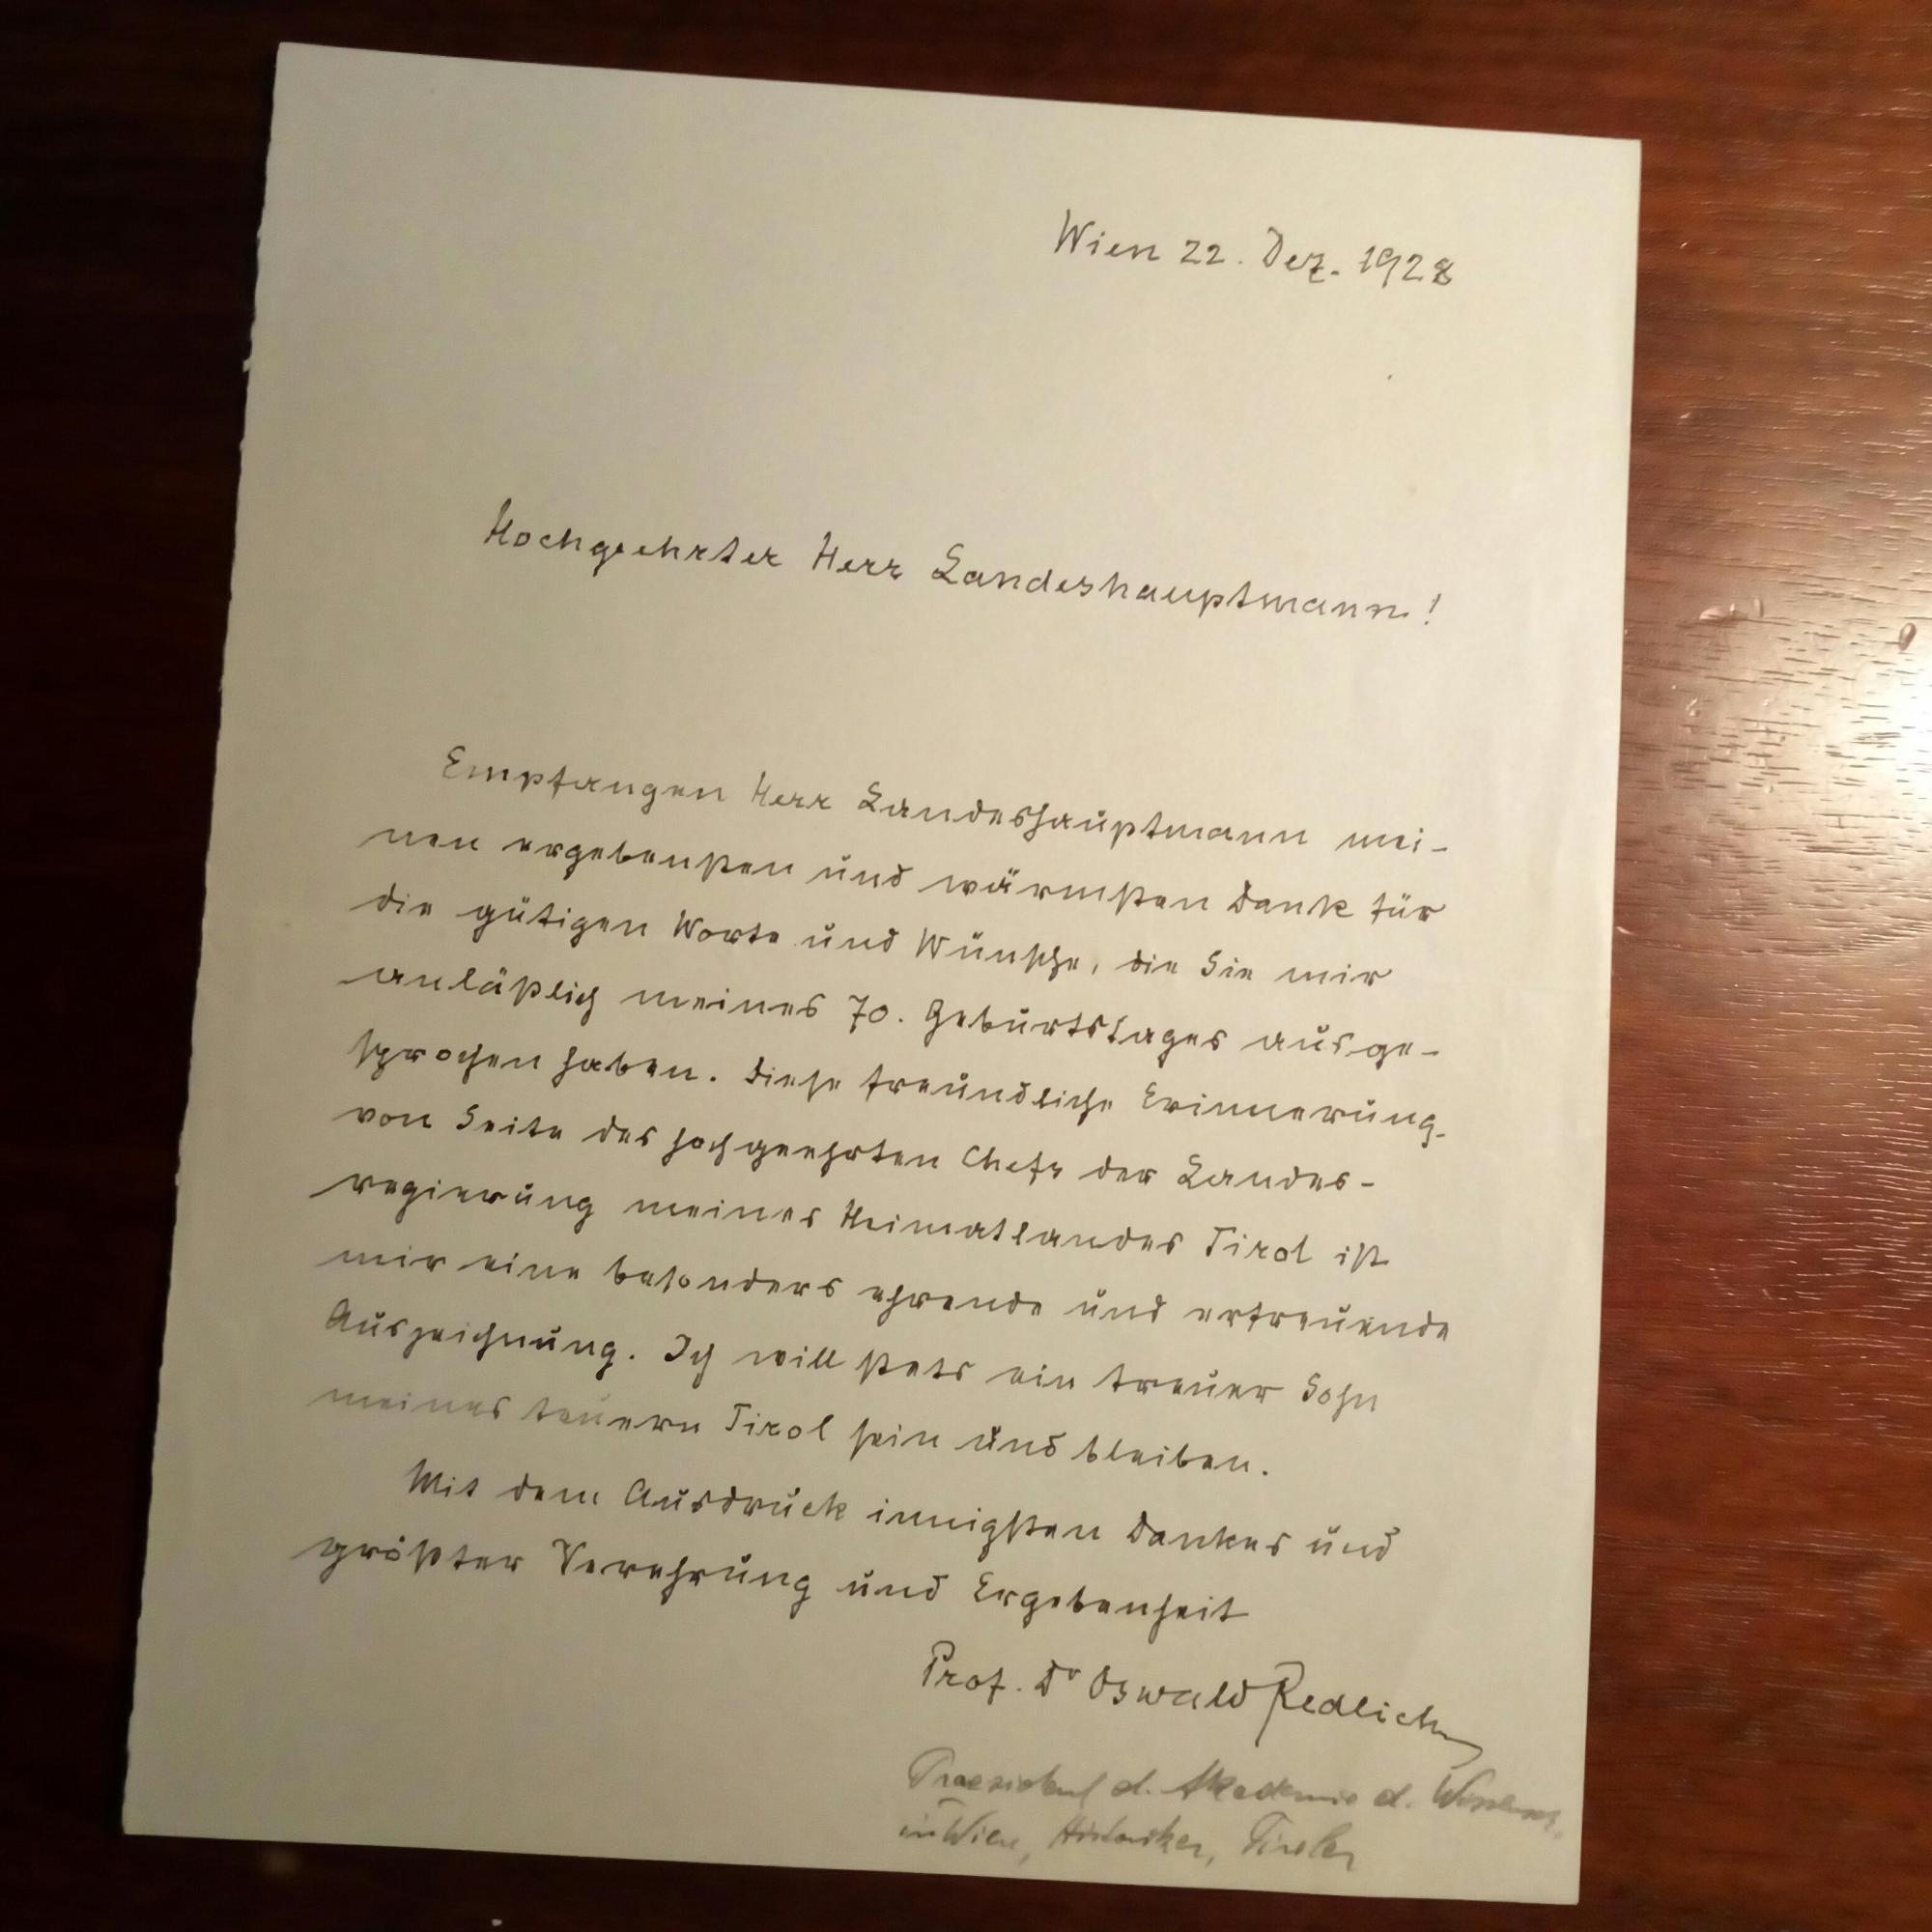 Wien 22. Dez. 1928
Hochgeehrter Herr Landeshauptmann!
Empfangen Herr Landeshauptmann mei-
nen ergebensten und wärmsten Dank für
die gütigen Worte und Wünsche, die Sie mir
anläßlich meines 70. Geburtstages ausge-
sprochen haben. Diese freundliche Erinnerung
von Seite des hochgeehrten Chefs der Landes-
regierung meines Heimatlandes Tirol ist
mir eine besonders ehrende und erfreuende
Auszeichnung. Ich will stets ein treuer Sohn
meines teuern Tirol sein und bleiben.
Mit dem Ausdruck innigsten Dankes und
größter Verehrung und Ergebenheit
Prof. Dr Oswald Redlich
Praesident d. Akademie d. Wissensch.
in Wien, Historiker, Tiroler